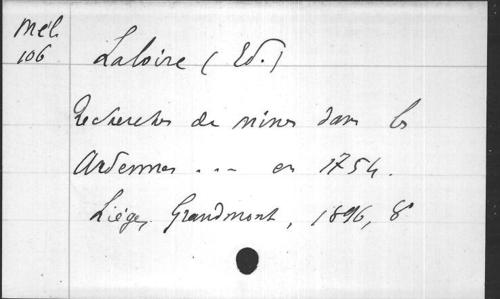 Mél
106
Laloire (Ed.)
Recherches de mines dans les
Ardennes ... en 1754.
Liége, Grandmont, 1896, 8°